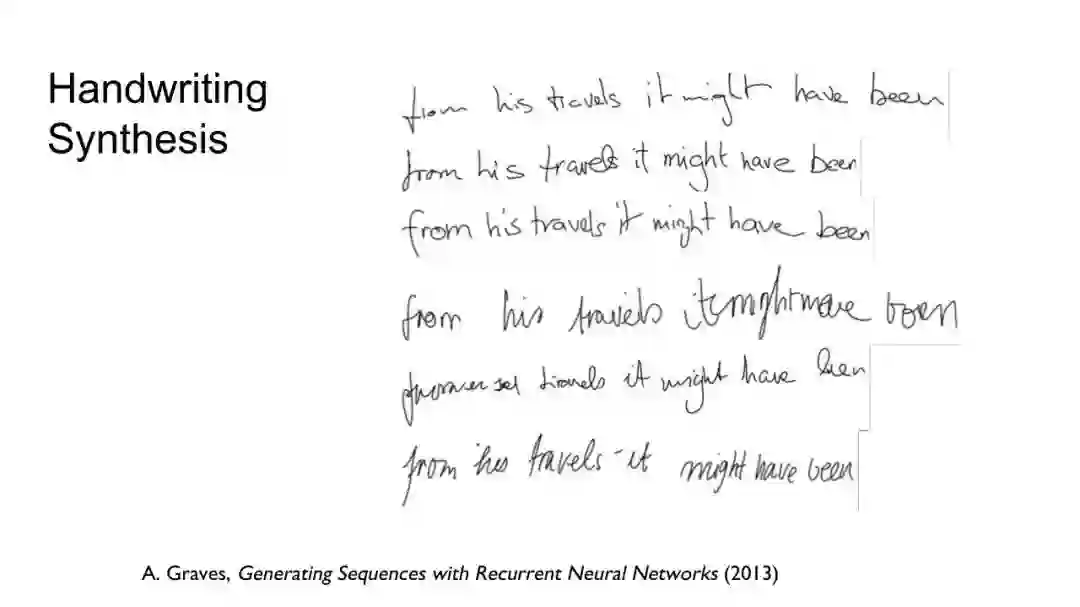 Handwriting
Synthesis
from his travels it might have been
from his travels it might have been
from his travels it might have been
from his travels it might have been
travels it might have been
from his travels it might have been
A. Graves, Generating Sequences with Recurrent Neural Networks (2013)